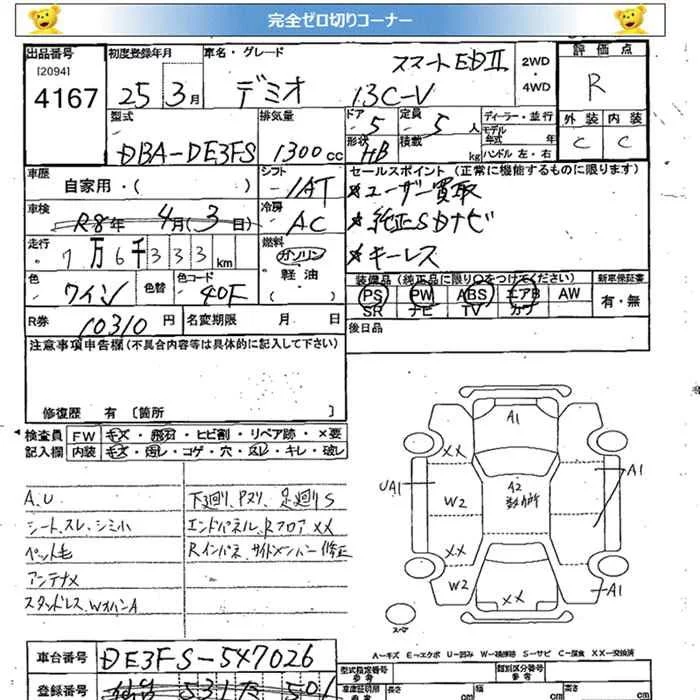 完全ゼロ切りコーナー
出品番号 初度登録年月 車名・グレード 評価点
[2094] スマートEDII 2WD・4WD R
4167 25 3月 デミオ 13C-V
型式 排気量 ドア 5 定員 5人 ディーラー・並行 外装 内装
DBA-DE3FS 1300cc 形状 HB 積載 kg モデル年式 年 ハンドル 左・右 C C
車歴 自家用・( ) シフト IAT セールスポイント(正常に機能するものに限ります)
車検 R8年 4月(3日) 冷房 AC *ユーザー買取
走行 7万6千333km 燃料 ガソリン 軽油 ( ) *純正SDナビ
*キーレス
色 ワイン 色替 色コード 40F 装備品(純正品に限り○をつけてください) 新車保証書
PS PW ABS エアB AW 有・無
SR ナビ TV カワ
R券 10310円 名変期限 月 日 後日品
注意事項申告欄(不具合内容等は具体的に記入して下さい)
修復歴 有 [箇所 ]
検査員 FW キズ・飛石・ヒビ割・リペア跡・×要
記入欄 内装 キズ・汚レ・コゲ・穴・スレ・キレ・破レ
A.U 下廻リ、Pスリ、足廻リS
シート、スレ、シミ小 エンドパネル、Rフロア XX
ペット毛 Rインパネ、サイドメンバー修正
アンテナX
スタッドレス、WオハンA
A1
XX
UA1 W2 A2 A1
XX
W2 XX A1
スペア
A－キズ E－エクボ U－凹み W－補修跡 S－サビ C－腐食 XX－交換済
車台番号 DE3FS-547026 型式指定番号 参考 類別区分番号 参考
登録番号 長さ cm 幅 cm 高さ cm